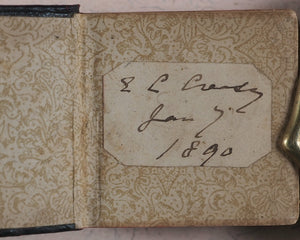 E L Creasy
Jan 7
1890